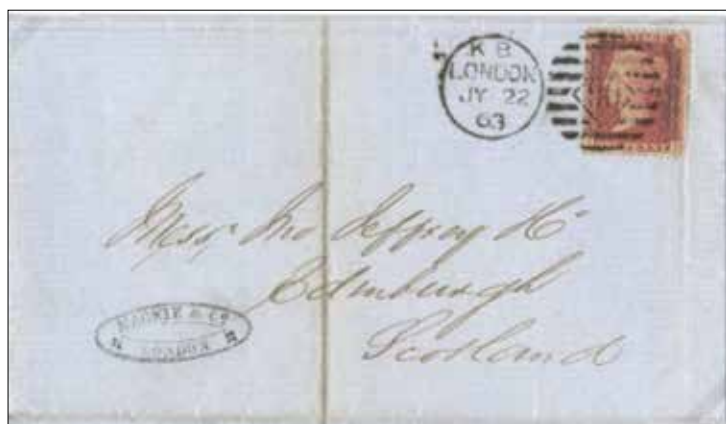 K B
LONDON
JY 22
63
Messrs Jno Jeffrey & Co
Edinburgh
Scotland
MACKIE & Co
LONDON